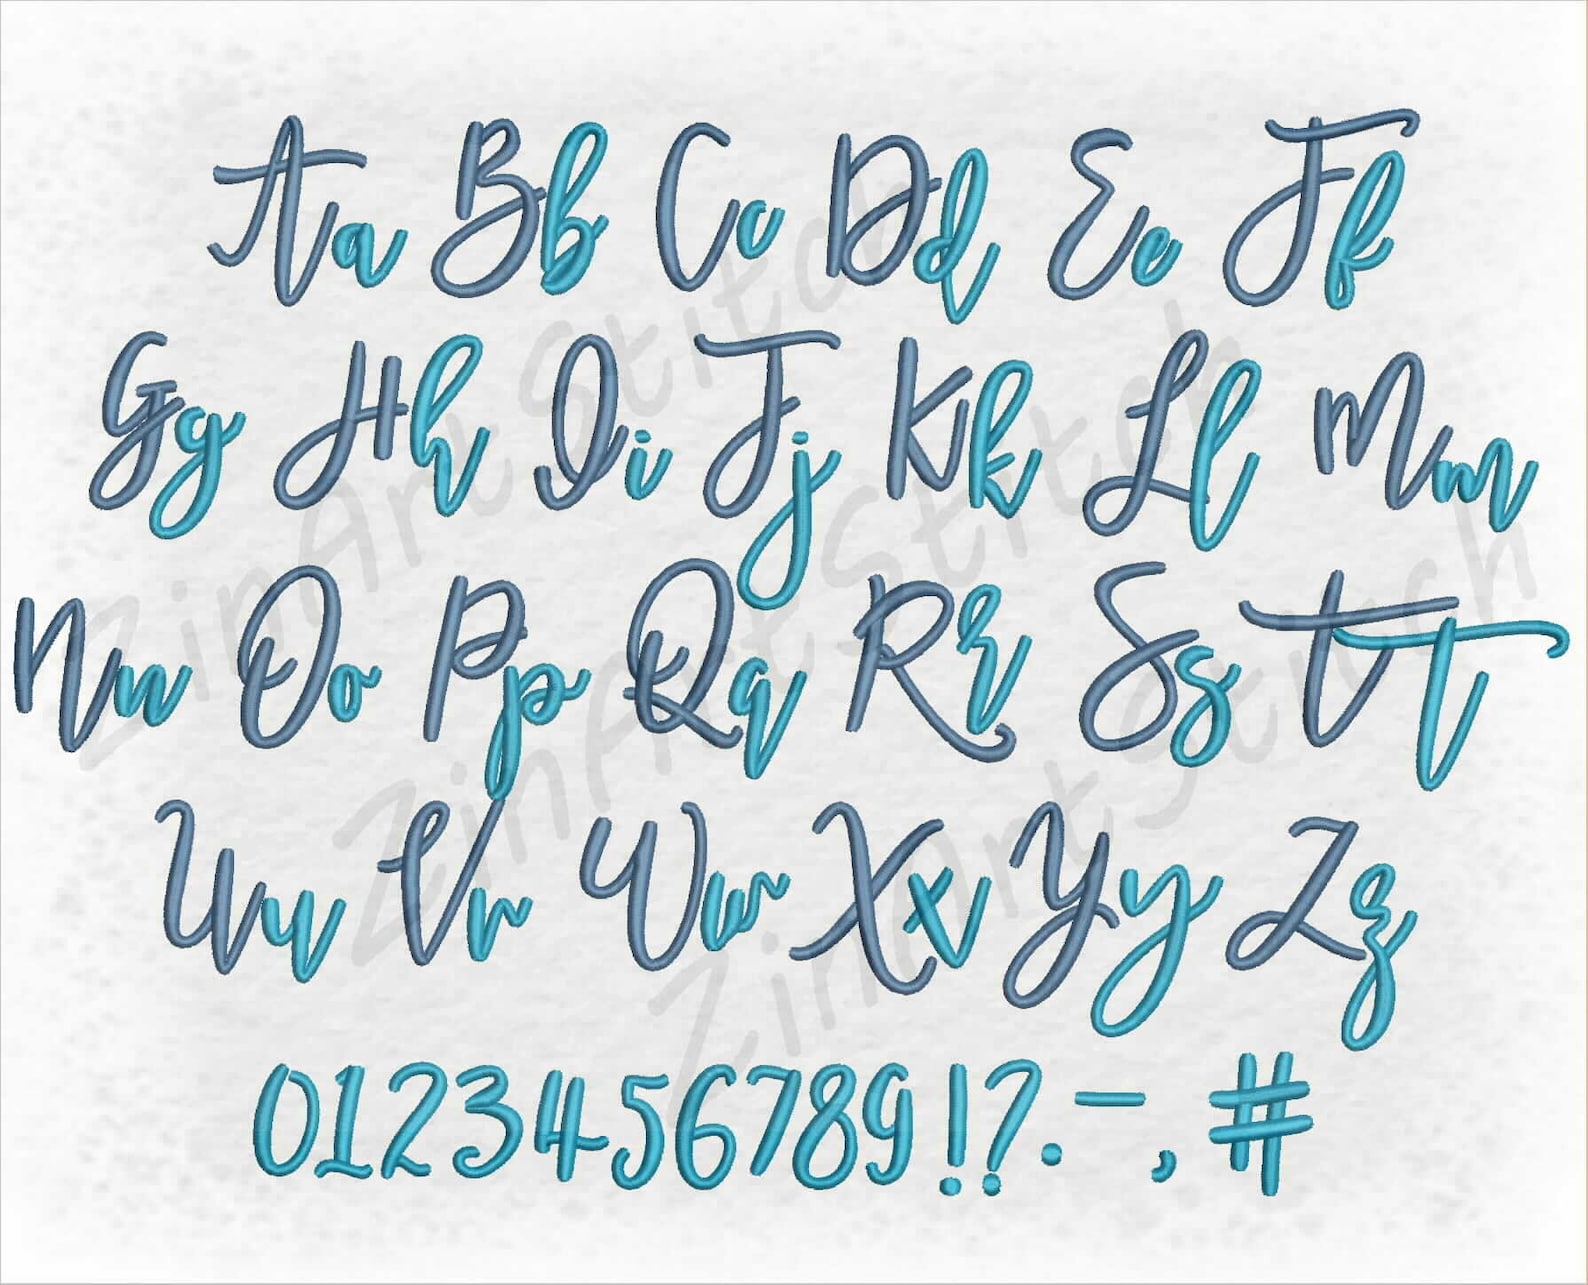 Aa Bb Cc Dd Ee Ff
Gg Hh Ii Jj Kk Ll Mm
Nn Oo Pp Qq Rr Ss Tt
Uu Vv Ww Xx Yy Zz
0123456789!?.-,#
ZinArt Stitch
ZinArt Stitch
ZinArt Stitch